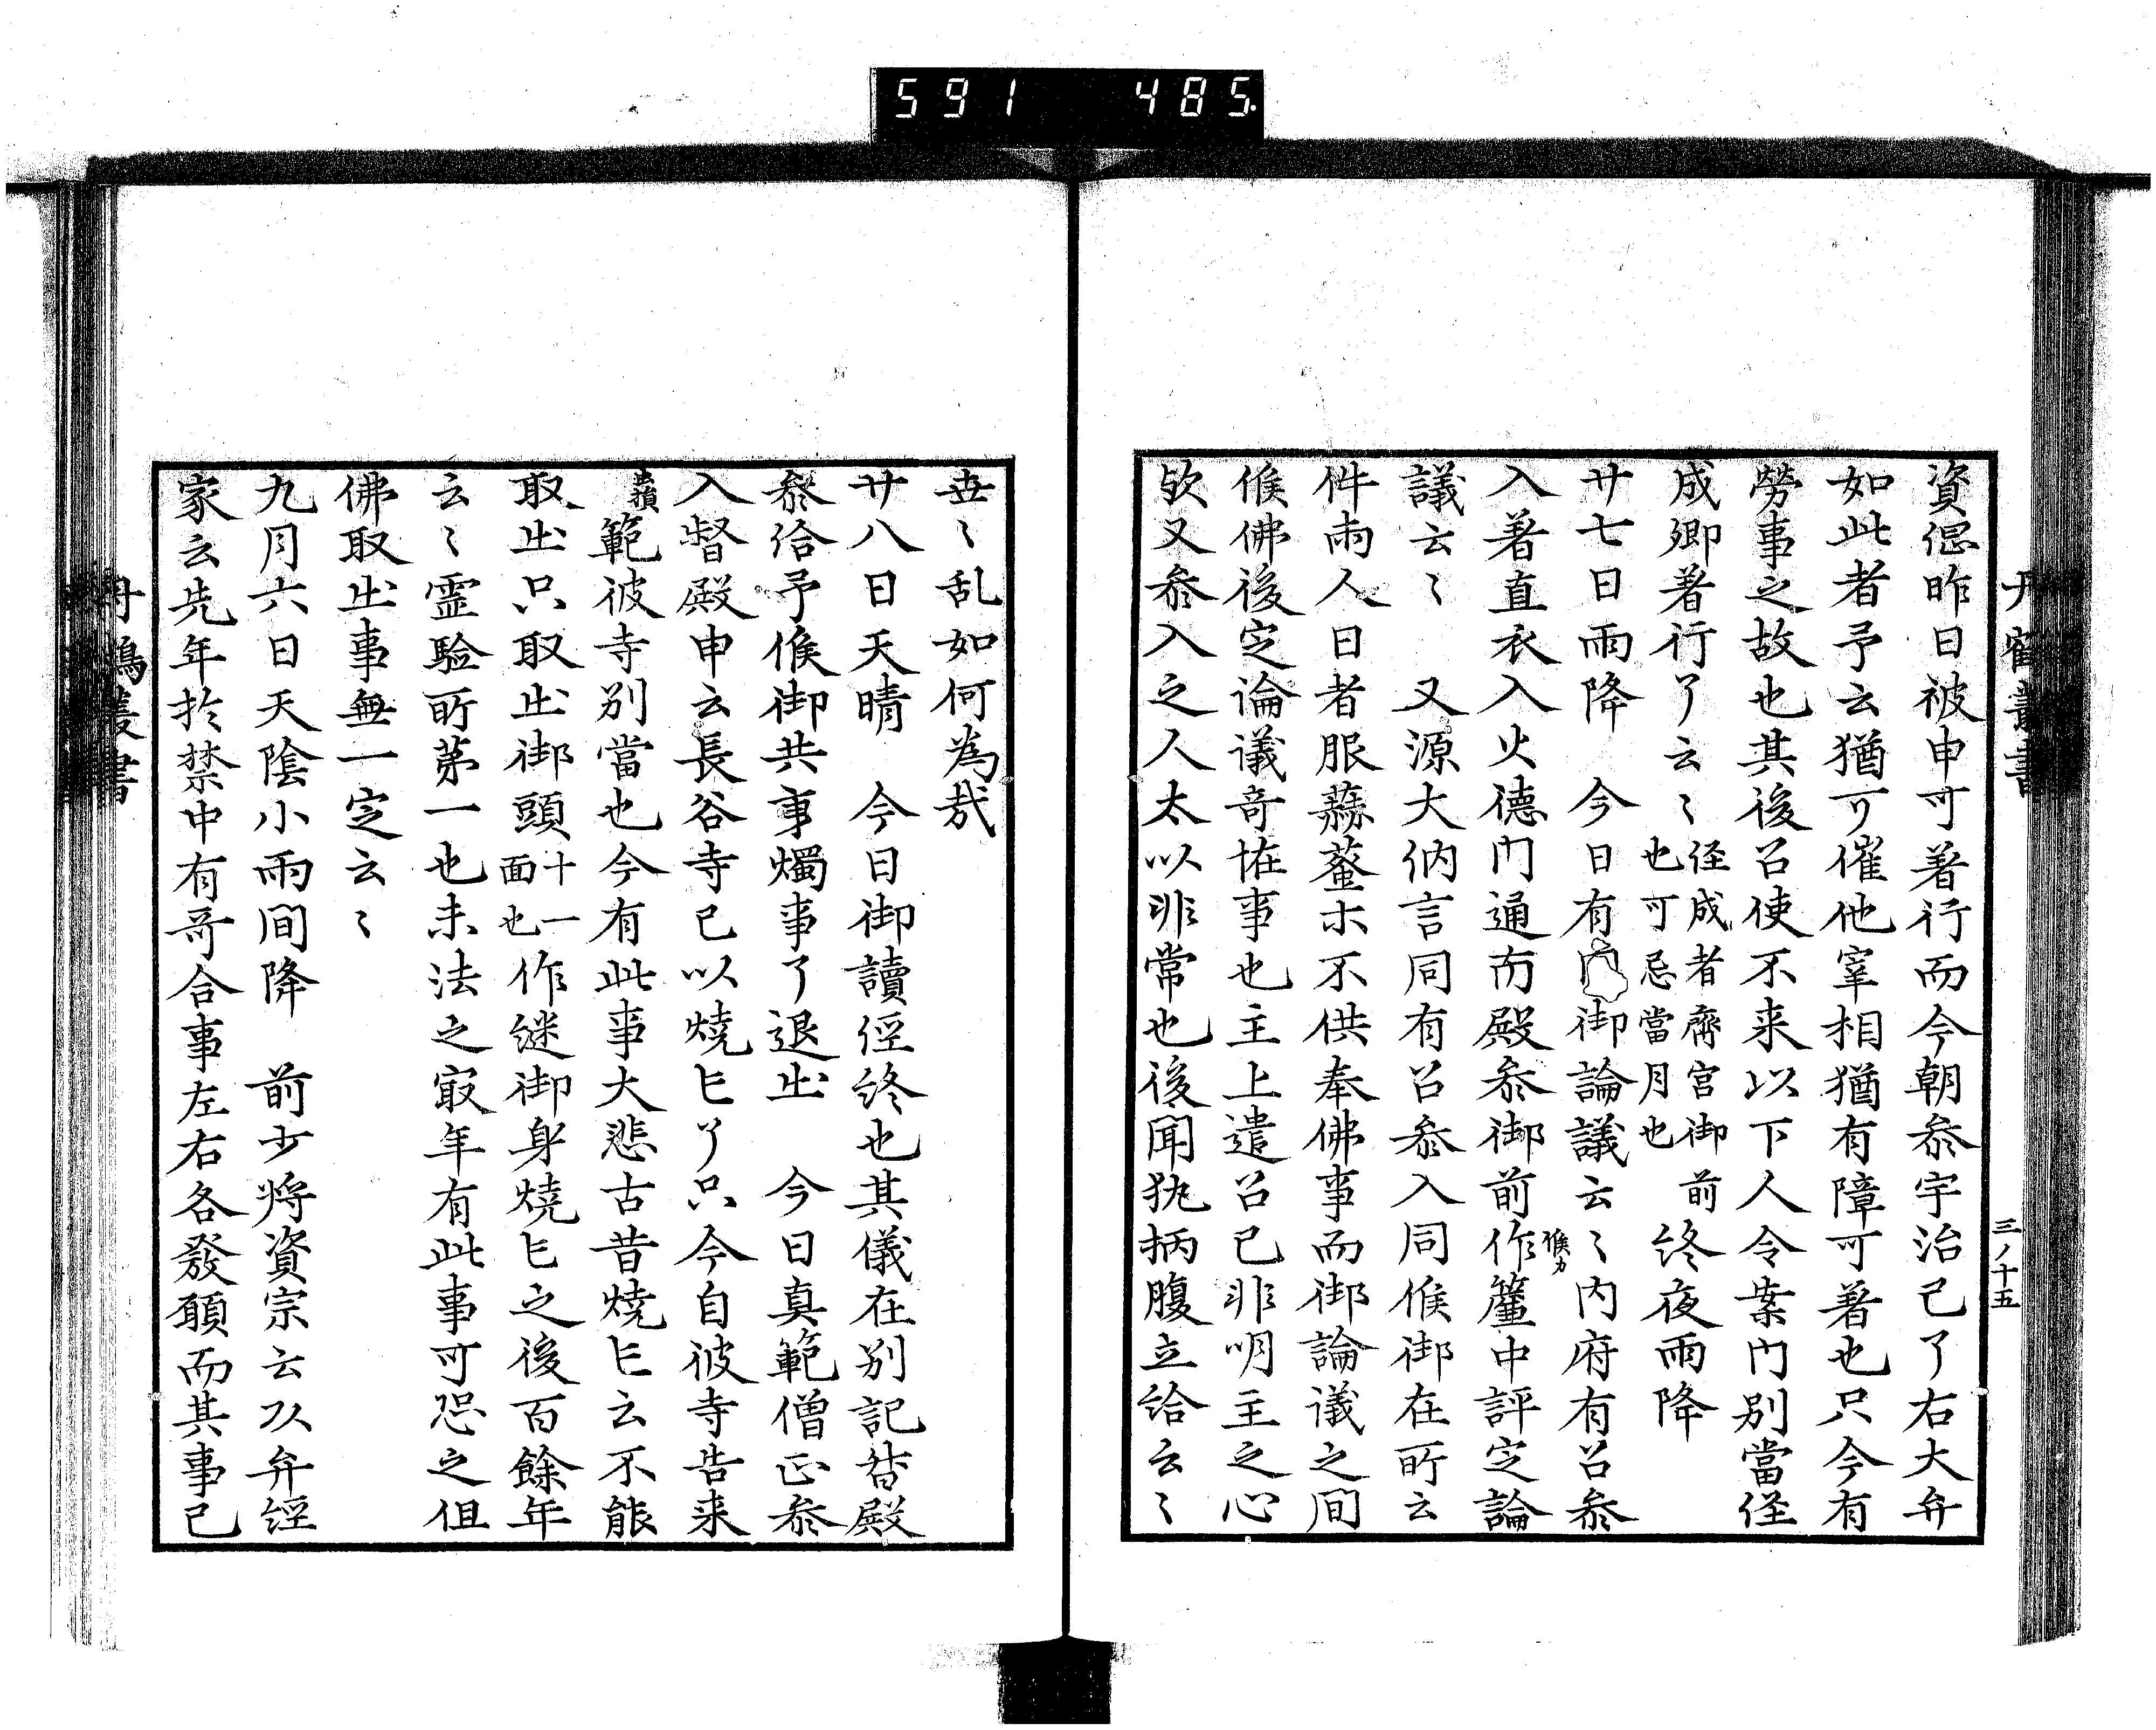 591 485
丹鶴叢書
三ノ十五
資偲昨日被申可著行而今朝叅宇治已了右大弁
如此者予云猶可催他宰相猶有障可著也只今有
勞事之故也其後召使不来以下人令葉門別當径
成卿著行了云〻径成者齊宮御前也可忌當月也終夜雨降
廿七日雨降 今日有御論議云〻内府有召叅
入著直衣入火德門通南殿叅御前作候カ簾中評定論
議云〻 又源大納言同有召叅入同候御在所云
件兩人日者服蒜薤木不供奉佛事而御論議之間
候佛後定論議竒恠事也主上遣召已非明主之心
欤又叅入之人太以非常也後聞執柄腹立給云〻
丗〻乱如何為哉
廿八日天晴 今日御讀径終也其儀在別記昝殿
叅給予候御共事燭事了退出 今日真範僧正叅
入督殿申云長谷寺已以燒亡了只今自彼寺告来
範彼寺別當也今有此事大悲古昔燒亡云不能
取出只取出御頭十一面也作継御身燒亡之後百餘年
云〻霊驗所苐一也末法之㝡年有此事可恐之但
佛取出事無一定云〻
九月六日天陰小雨間降 前少将資宗云以弁経
家云先年於禁中有哥合事左右各發願而其事已
丹鶴叢書